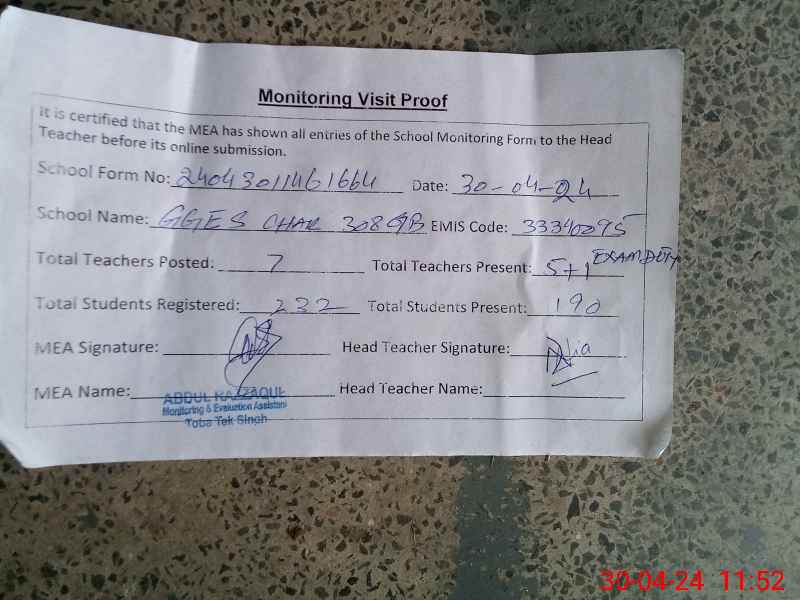 Monitoring Visit Proof
It is certified that the MEA has shown all entries of the School Monitoring Form to the Head
Teacher before its online submission.
School Form No: 24043011461664 Date: 30-04-24
School Name: GGES CHAK 308 GB EMIS Code: 33340095
Total Teachers Posted: 7 Total Teachers Present: 5+1 EXAM DUTY
Total Students Registered: 232 Total Students Present: 190
MEA Signature: Head Teacher Signature:
MEA Name: ABDUL RAZZAQUE Head Teacher Name:
Monitoring & Evaluation Assistant
Toba Tek Singh
30-04-24 11:52